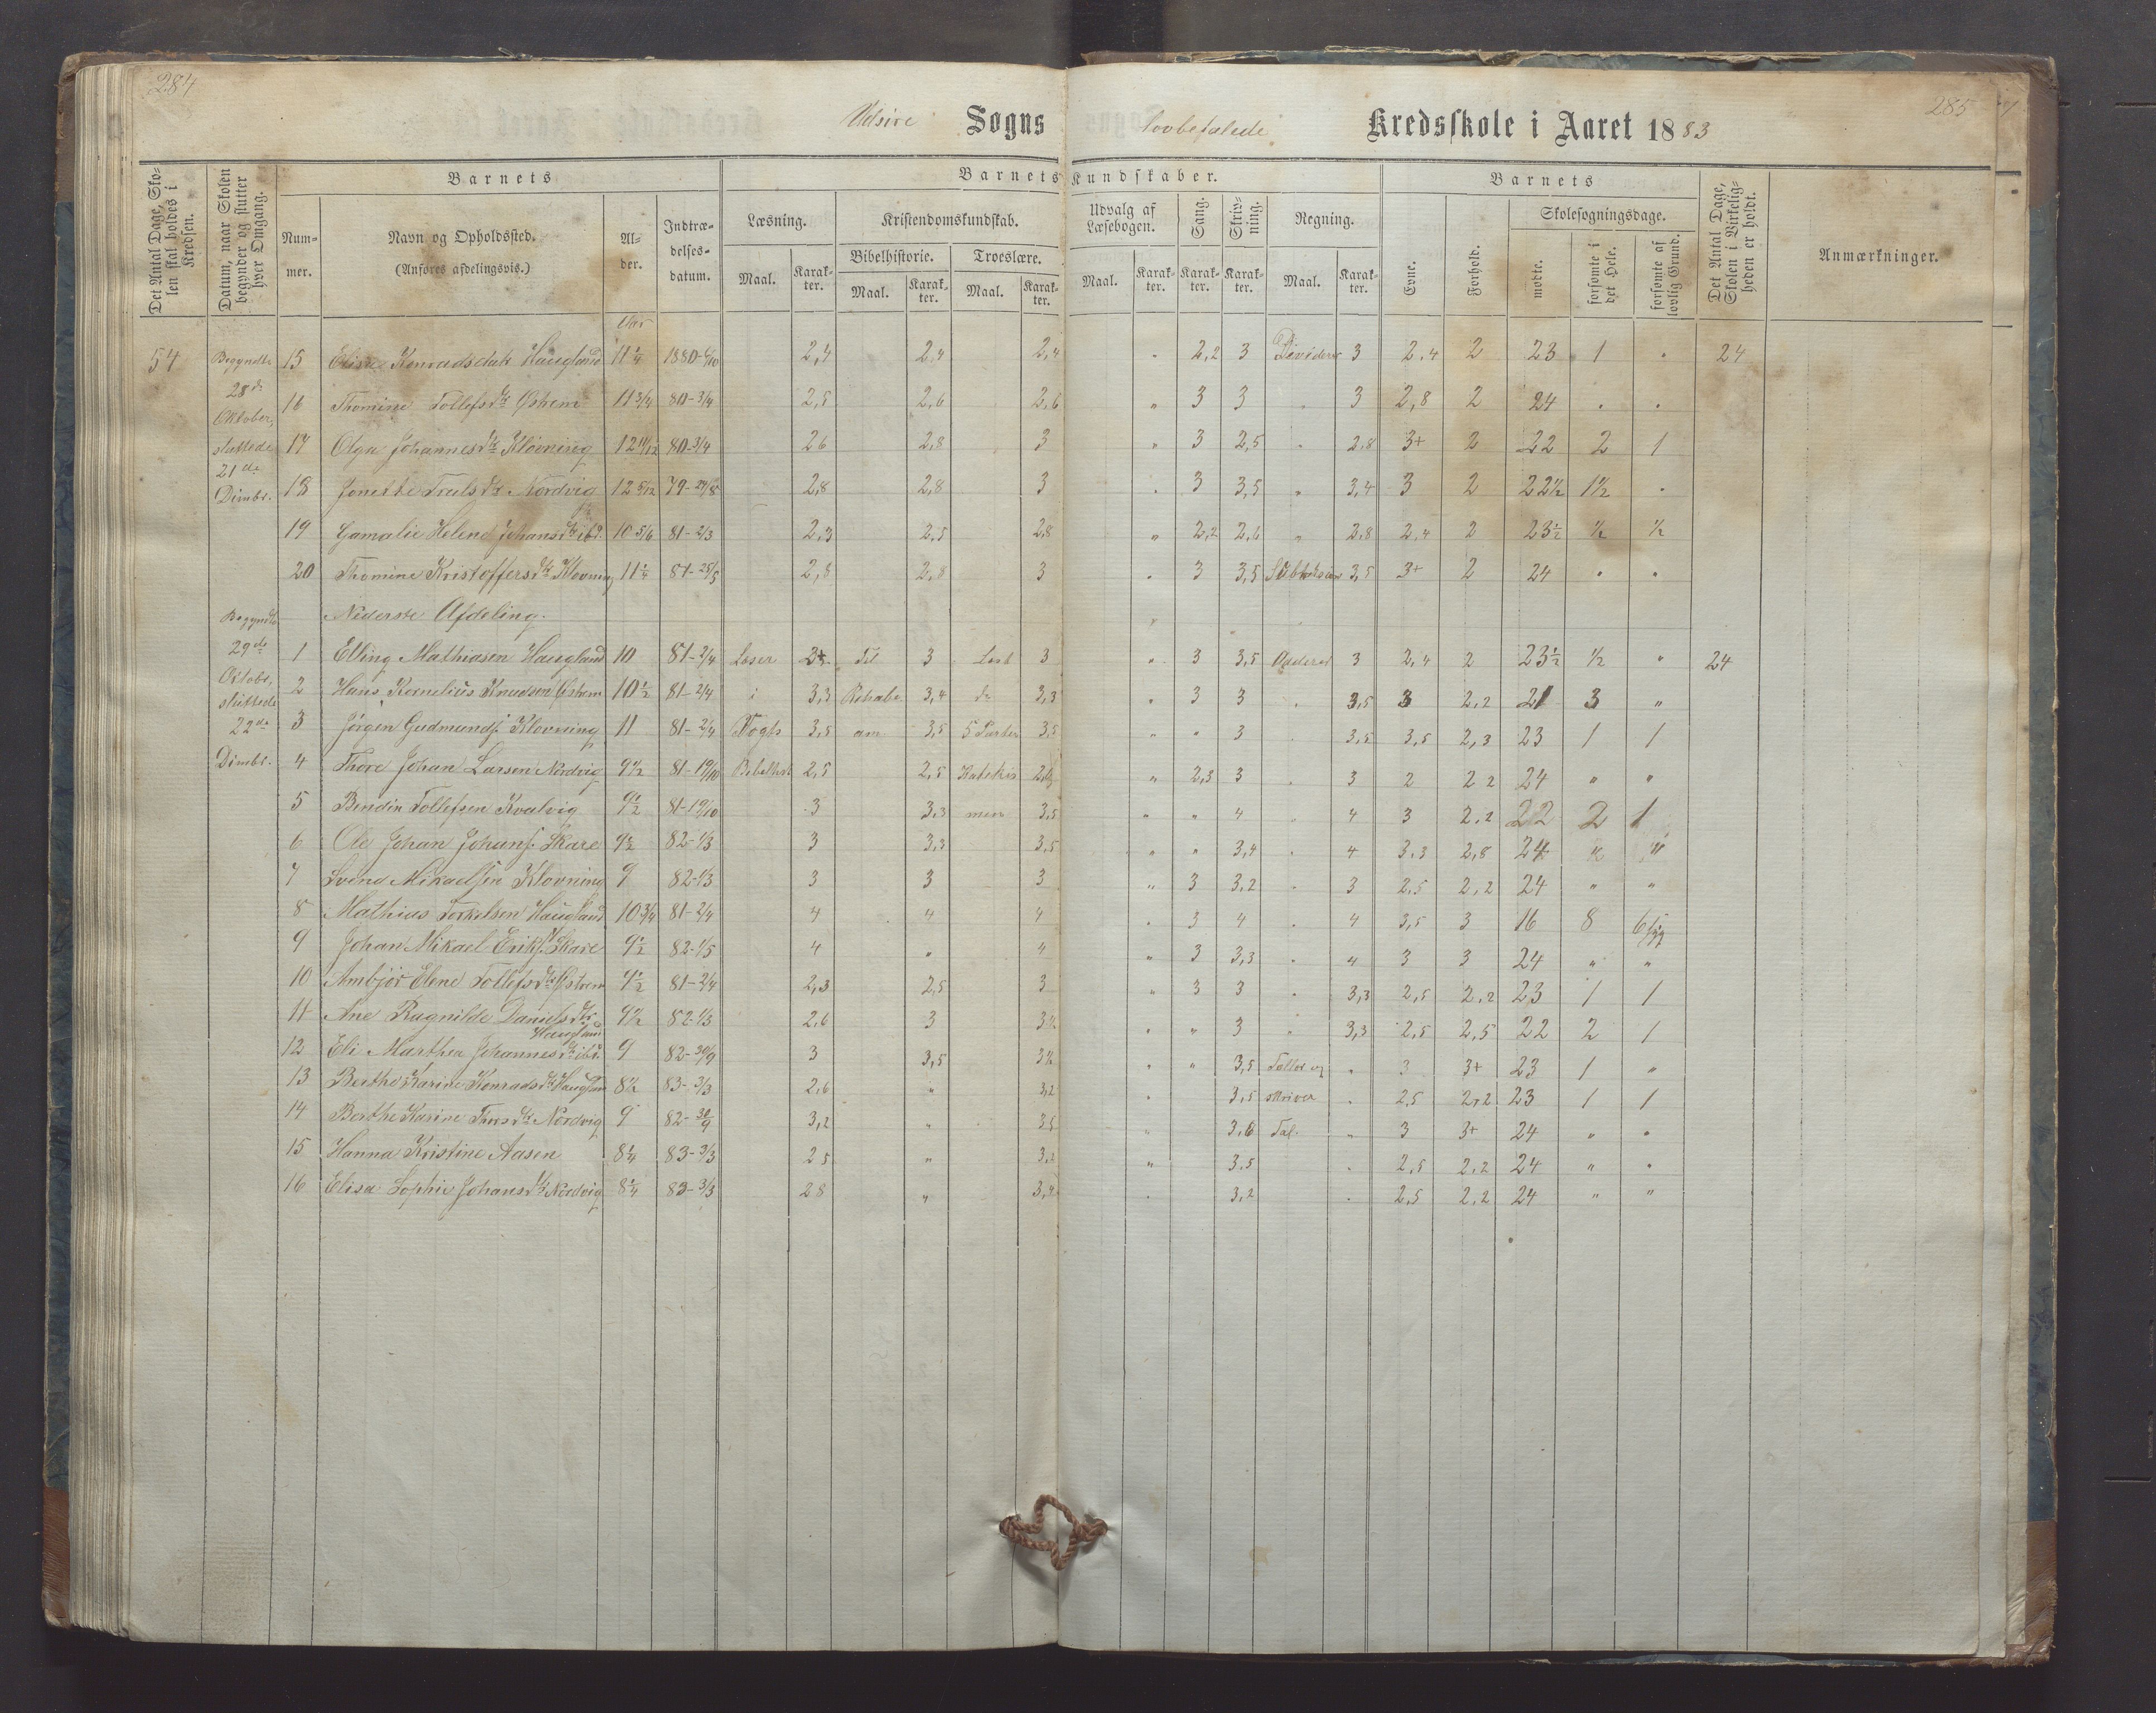 284
285
Udsire Sogns lovbefalede Kredsskole i Aaret 1883
Det Antal Dage, Skolen skal holdes i Kredsen.
Datum, naar Skolen begynder og slutter hver Omgang.
Barnets
Barnets Kundskaber.
Barnets
Det Antal Dage, Skolen i Virkeligheden er holdt.
Anmærkninger.
Num-mer.
Navn og Opholdssted.
(Anføres afdelingsvis.)
Al-der.
Indtræ-delses-datum.
Læsning.
Kristendomskundskab.
Udvalg af Læsebogen.
Sang.
Skriv-ning.
Regning.
Evne.
Forhold.
Skolesøgningsdage.
Bibelhistorie.
Troeslære.
Maal. Karak-ter. Maal. Karak-ter. Maal. Karak-ter. Maal. Karak-ter. Karak-ter. Karak-ter. Maal. Karak-ter.
mødte.
forsømte i det Hele.
forsømte af lovlig Grund.
Aar
54 Begyndte 15 Elisa Konradsdatr Haugland 11 1/4 1880- 2,4 2,4 2,4 " 2,2 3 Dividere 3 2,4 2 23 1 " 24
28de Oktober, 16 Thomine Tollefsdtr Østrem 11 3/4 80-3/4 2,5 2,6 2,6 " 3 3 " 3 2,8 2 24 " "
sluttede 17 Olga Johannesdtr Klovning 12 11/12 80-3/4 2,6 2,8 3 " 3 2,5 " 2,8 3+ 2 22 2 1
21de Dimbr. 18 Jonette Troelsdtr Nordvig 12 5/12 79- 2,8 2,8 3 " 3 3,5 " 3,4 3 2 22 1/2 1 1/2 "
19 Gamalie Helene Johansdtr ibd. 10 5/6 81-2/3 2,3 2,5 2,8 " 2,2 2,6 " 2,8 2,4 2 23 1/2 1/2 1/2
20 Thomine Kristoffersdtr Klovning 11 1/4 81-25/5 2,8 2,8 3 " 3 3,5 3,5 3+ 2 24 " "
Begyndte Nederste Afdeling.
29de 1 Elling Mathiasen Haugland 10 81-2/4 Læser 3+ Til 3 Læst 3 " 3 3,5 Addere 3 2,4 2 23 1/2 1/2 " 24
Octobr. sluttede 2 Hans Kornelius Knudsen Østrem 10 1/2 81-2/4 i 3,3 Rehabe 3,4 de 3,3 " 3 3 " 3,5 3 2,2 21 3 "
22de 3 Jørgen Gudmunds. Klovning 11 81-2/4 Vogts 3,5 am 3,5 5 Parter 3,5 " " 3 " 3,5 3,5 2,3 23 1 1
Dimbr. 4 Thore Johan Larsen Nordvig 9 1/2 81-19/10 Bibelhist 2,5 2,5 Katekis 2,8 " 2,3 3 " 3 2 2,2 24 " "
5 Bendin Tollefsen Kvalvig 9 1/2 81-19/10 3 3,3 men 3,5 " " 4 " 4 3 2,2 22 2 1
6 Ole Johan Johans. Skare 9 1/2 82-1/3 3 3,3 3,5 " " 3,4 " 4 3,3 2,8 24 " "
7 Svend Mikaelsen Klovning 9 82-1/3 3 3 3 " 3 3,2 " 3 2,5 2,2 24 " "
8 Mathias Torkelsen Haugland 10 3/4 81-2/4 4 4 4 " 3 4 " 4 3,5 3 16 8 6 syg
9 Johan Mikael Eriks. Skare 9 1/2 82-1/5 4 " 4 " 3 3,3 " 4 3 3 24 " "
10 Ambjør Elene Tollefsdtr Østrem 9 1/2 81-2/4 2,3 2,5 3 " 3 3 " 3,3 2,5 2,2 23 1 1
11 Ane Ragnilde Danielsdtr Haugland 9 1/2 82-1/3 2,6 3 " " 3 " 3,3 2,5 2,5 22 2 1
12 Eli Marthea Johannesdtr ibd. 9 82-30/9 3 3,5 " " 3,5 Tæller og " 3 3+ 23 1 "
13 Berthe Karine Konradsdtr Haugland 8 1/2 83-3/3 2,6 " 3,2 " 3,5 skriver " 2,5 2,2 23 1 1
14 Berthe Karine Thorsdtr Nordvig 9 82-30/9 3,2 " 3,5 " 3,6 Tal. " 3 3+ 24 " "
15 Hanna Kristine Aasen 8 1/4 83-3/3 2,5 " 3,2 " 3,5 " 2,5 2,2 24 " "
16 Elisa Sophie Johansdtr Nordvig 8 1/4 83-3/3 2,8 " " 3,2 " 2,5 2,2 24 " "